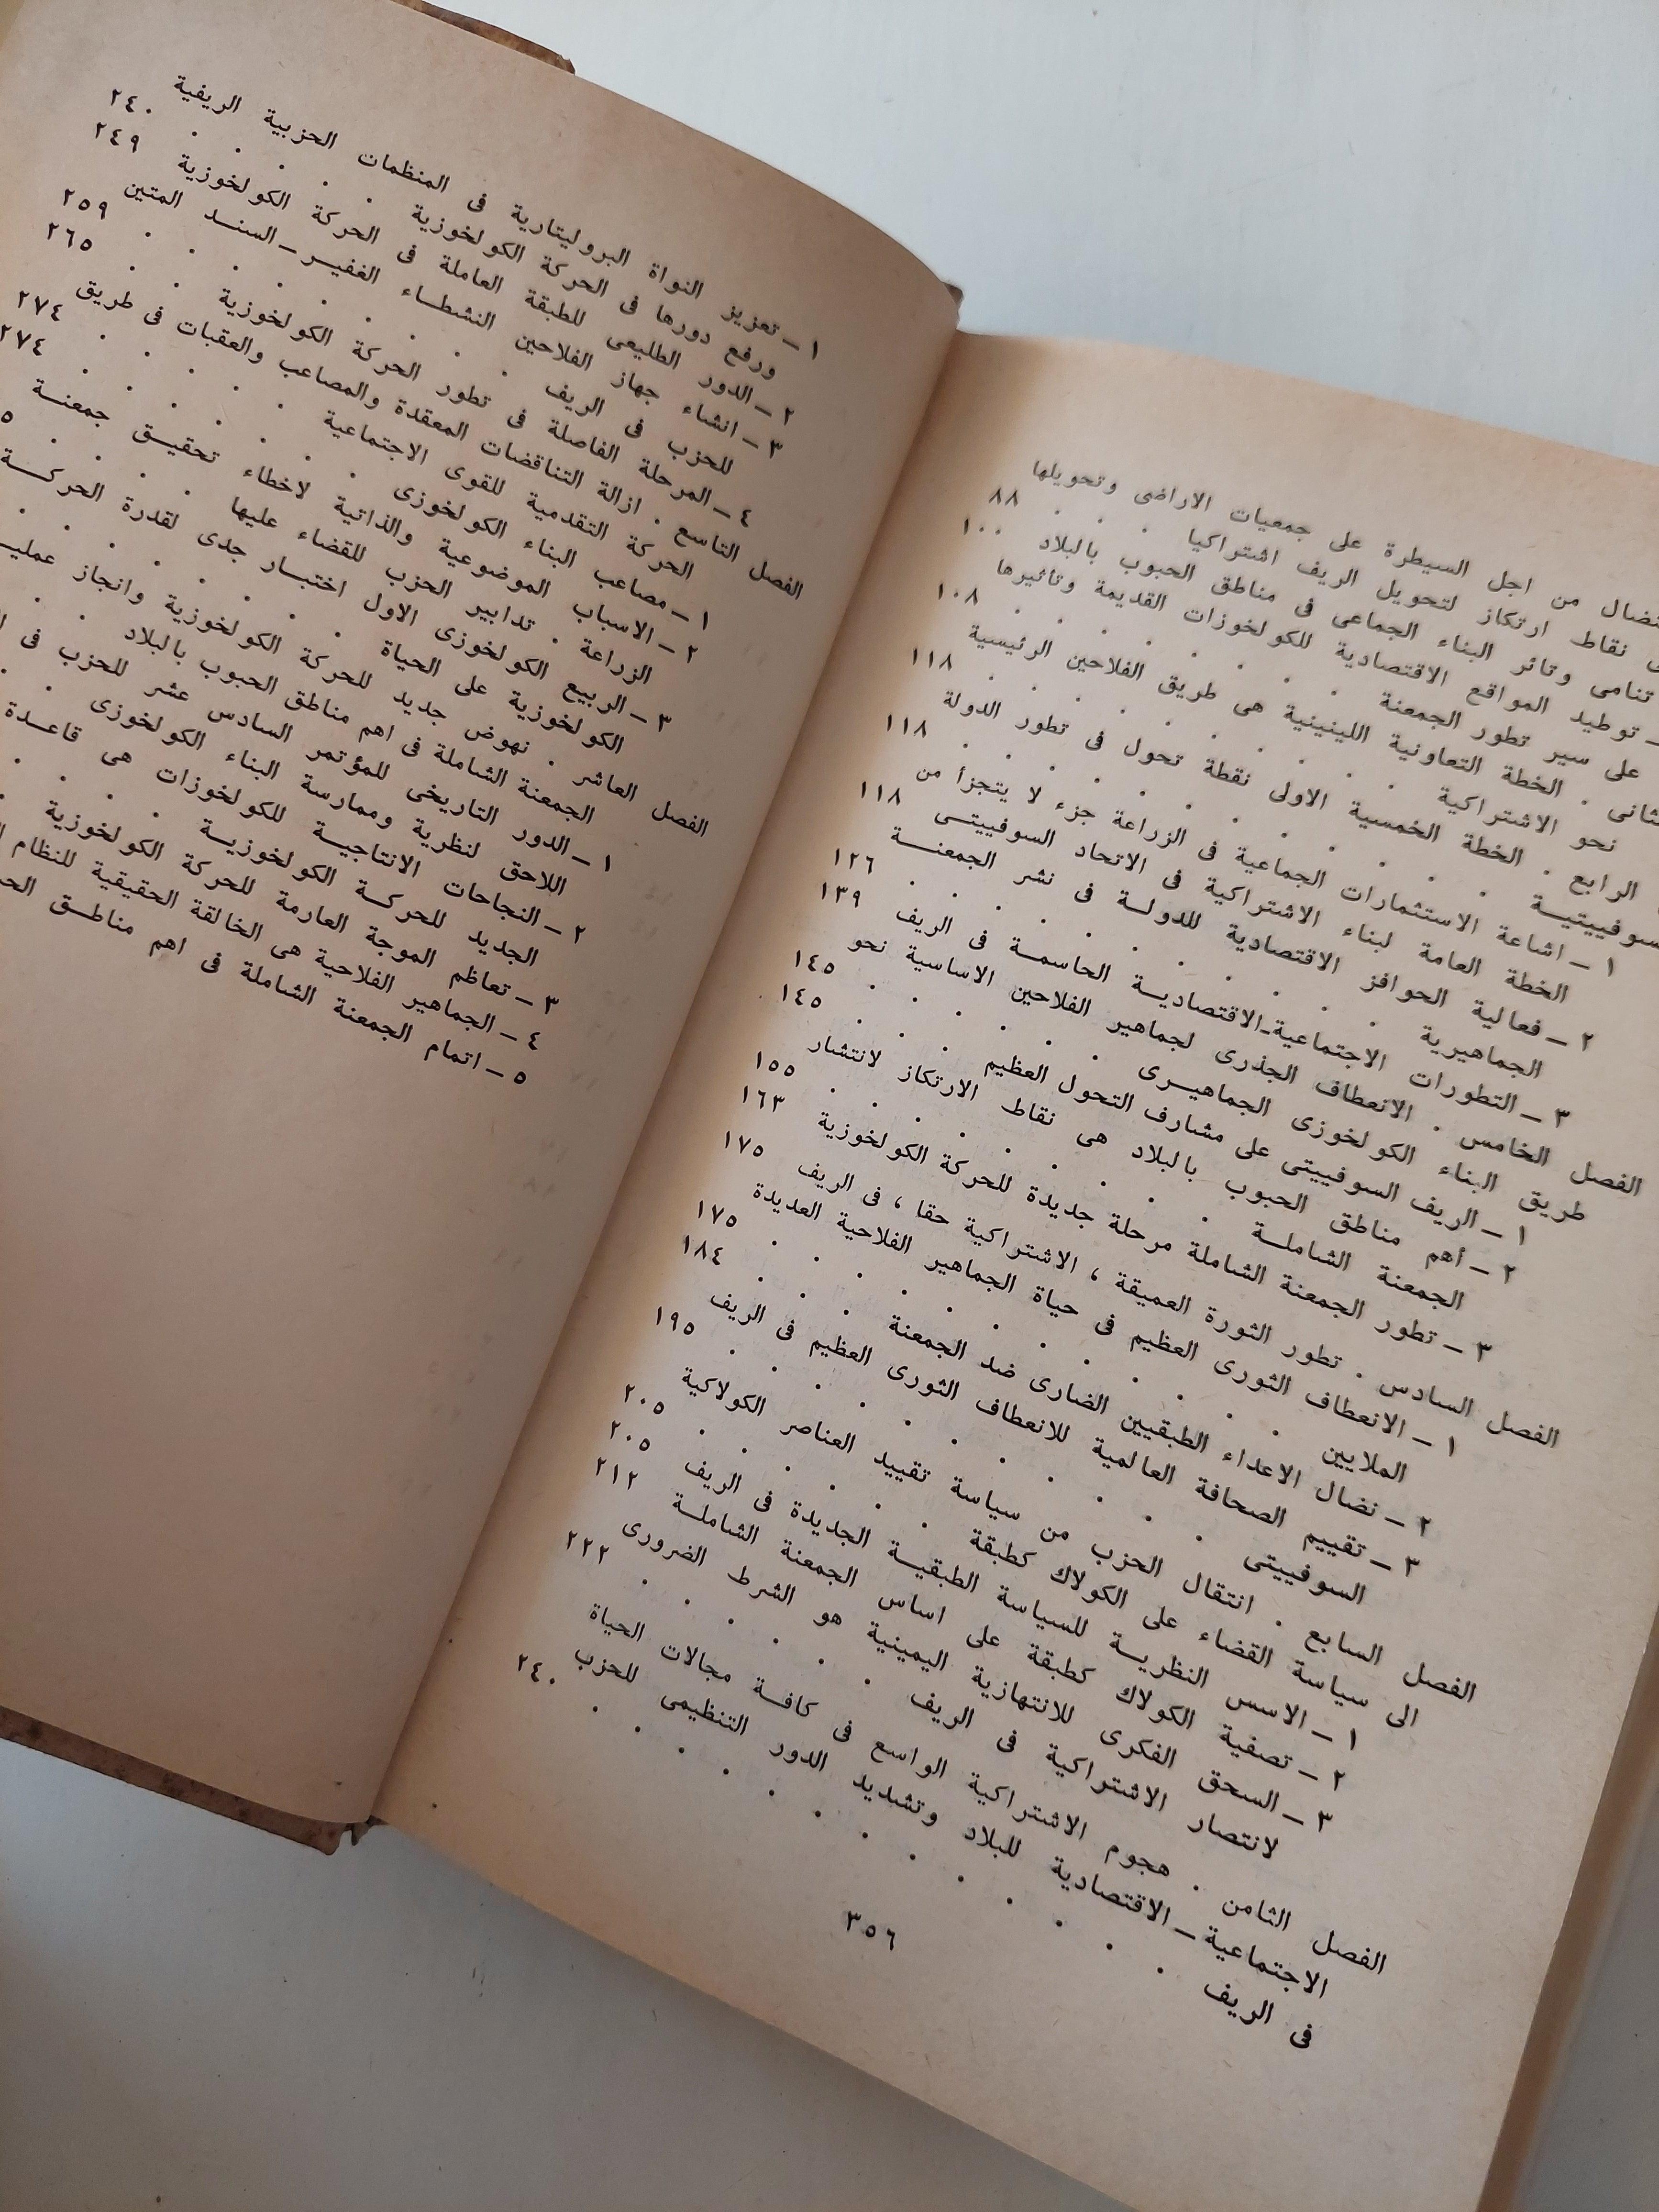 نضال من اجل السيطرة على جمعيات الاراضى وتحويلها
نقاط ارتكاز لتحويل الريف اشتراكيا . . . ٨٨
تنامى وتائر البناء الجماعى فى مناطق الحبوب بالبلاد ١٠٠
توطيد المواقع الاقتصادية للكولخوزات القديمة وتاثيرها
على سير تطور الجمعنة . . . . . . . ١٠٨
الخطة التعاونية اللينينية هى طريق الفلاحين الرئيسية
نحو الاشتراكية . . . . . . . . . ١١٨
الرابع . الخطة الخمسية الاولى نقطة تحول فى تطور الدولة
السوفييتية . . . . . . . . . ١١٨
١ – اشاعة الاستثمارات الجماعية فى الزراعة جزء لا يتجزأ من
الخطة العامة لبناء الاشتراكية فى الاتحاد السوفييتى ١١٨
٢ – فعالية الحوافز الاقتصادية للدولة فى نشر الجمعنة
الجماهيرية . . . . . . . . . ١٢٦
٣ – التطورات الاجتماعية-الاقتصادية الحاسمة فى الريف ١٣٩
الفصل الخامس . الانعطاف الجذرى لجماهير الفلاحين الاساسية نحو
طريق البناء الكولخوزى الجماهيرى . . . . . . ١٤٥
١ – الريف السوفييتى على مشارف التحول العظيم . . . ١٤٥
٢ – أهم مناطق الحبوب بالبلاد هى نقاط الارتكاز لانتشار
الجمعنة الشاملة . . . . . . . . . ١٥٥
٣ – تطور الجمعنة الشاملة مرحلة جديدة للحركة الكولخوزية ١٦٣
الفصل السادس . تطور الثورة العميقة ، الاشتراكية حقا ، فى الريف ١٧٥
١ – الانعطاف الثورى العظيم فى حياة الجماهير الفلاحية العديدة
الملايين . . . . . . . . . . . ١٧٥
٢ – نضال الاعداء الطبقيين الضارى ضد الجمعنة . . . ١٨٤
٣ – تقييم الصحافة العالمية للانعطاف الثورى العظيم فى الريف
السوفييتى . . . . . . . . . . . ١٩٥
الفصل السابع . انتقال الحزب من سياسة تقييد العناصر الكولاكية
الى سياسة القضاء على الكولاك كطبقة . . . . . . ٢٠٥
١ – الاسس النظرية للسياسة الطبقية الجديدة فى الريف ٢٠٥
٢ – تصفية الكولاك كطبقة على اساس الجمعنة الشاملة ٢١٢
٣ – السحق الفكرى للانتهازية اليمينية هو الشرط الضرورى
لانتصار الاشتراكية فى الريف . . . . . . ٢٢٢
الفصل الثامن . هجوم الاشتراكية الواسع فى كافة مجالات الحياة
الاجتماعية – الاقتصادية للبلاد وتشديد الدور التنظيمى للحزب
فى الريف . . . . . . . . . . . . . ٢٤٠
٣٥٦
١ – تعزيز النواة البروليتارية فى المنظمات الحزبية الريفية
ورفع دورها فى الحركة الكولخوزية . . . . . ٢٤٠
٢ – الدور الطليعى للطبقة العاملة فى الحركة الكولخوزية ٢٤٩
٣ – انشاء جهاز الفلاحين النشطاء الغفير – السند المتين
للحزب فى الريف . . . . . . . . . ٢٥٩
٤ – المرحلة الفاصلة فى تطور الحركة الكولخوزية . . . ٢٦٥
الفصل التاسع . ازالة التناقضات المعقدة والمصاعب والعقبات فى طريق
الحركة التقدمية للقوى الاجتماعية . . . . . . ٢٧٤
١ – مصاعب البناء الكولخوزى . . . . . . . ٢٧٤
٢ – الاسباب الموضوعية والذاتية لاخطاء تحقيق جمعنة
الزراعة . تدابير الحزب للقضاء عليها . . . . .
٣ – الربيع الكولخوزى الاول اختبار جدى لقدرة الحركة
الكولخوزية على الحياة . . . . . . .
الفصل العاشر . نهوض جديد للحركة الكولخوزية وانجاز
الجمعنة الشاملة فى اهم مناطق الحبوب بالبلاد . . .
١ – الدور التاريخى للمؤتمر السادس عشر للحزب فى
اللاحق لنظرية وممارسة البناء الكولخوزى . .
٢ – النجاحات الانتاجية للكولخوزات هى قاعدة
الجديد للحركة الكولخوزية . . . .
٣ – تعاظم الموجة العارمة للحركة الكولخوزية
٤ – الجماهير الفلاحية هى الخالقة الحقيقية للنظام
٥ – اتمام الجمعنة الشاملة فى اهم مناطق